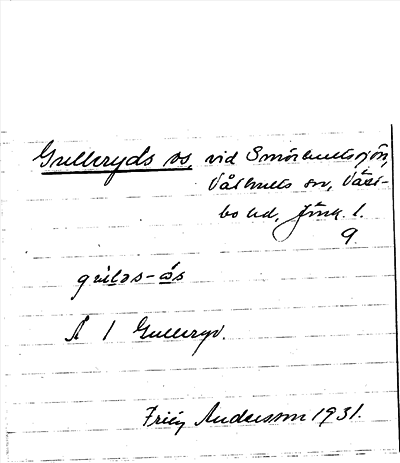 Gulleryds os, vid Smörhultssjön,
Våthults sn, Väst-
bo hd, Jönk. l.
9.
gùləs-ós
Å 1 Gulleryd.
Fritz Andersson 1931.